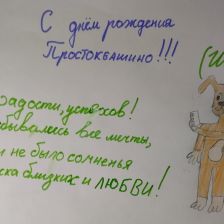 С днём рождения
Простоквашино!!!
радости, успехов!
бывались все мечты,
и не было сомненья
ска близких и ЛЮБВИ!